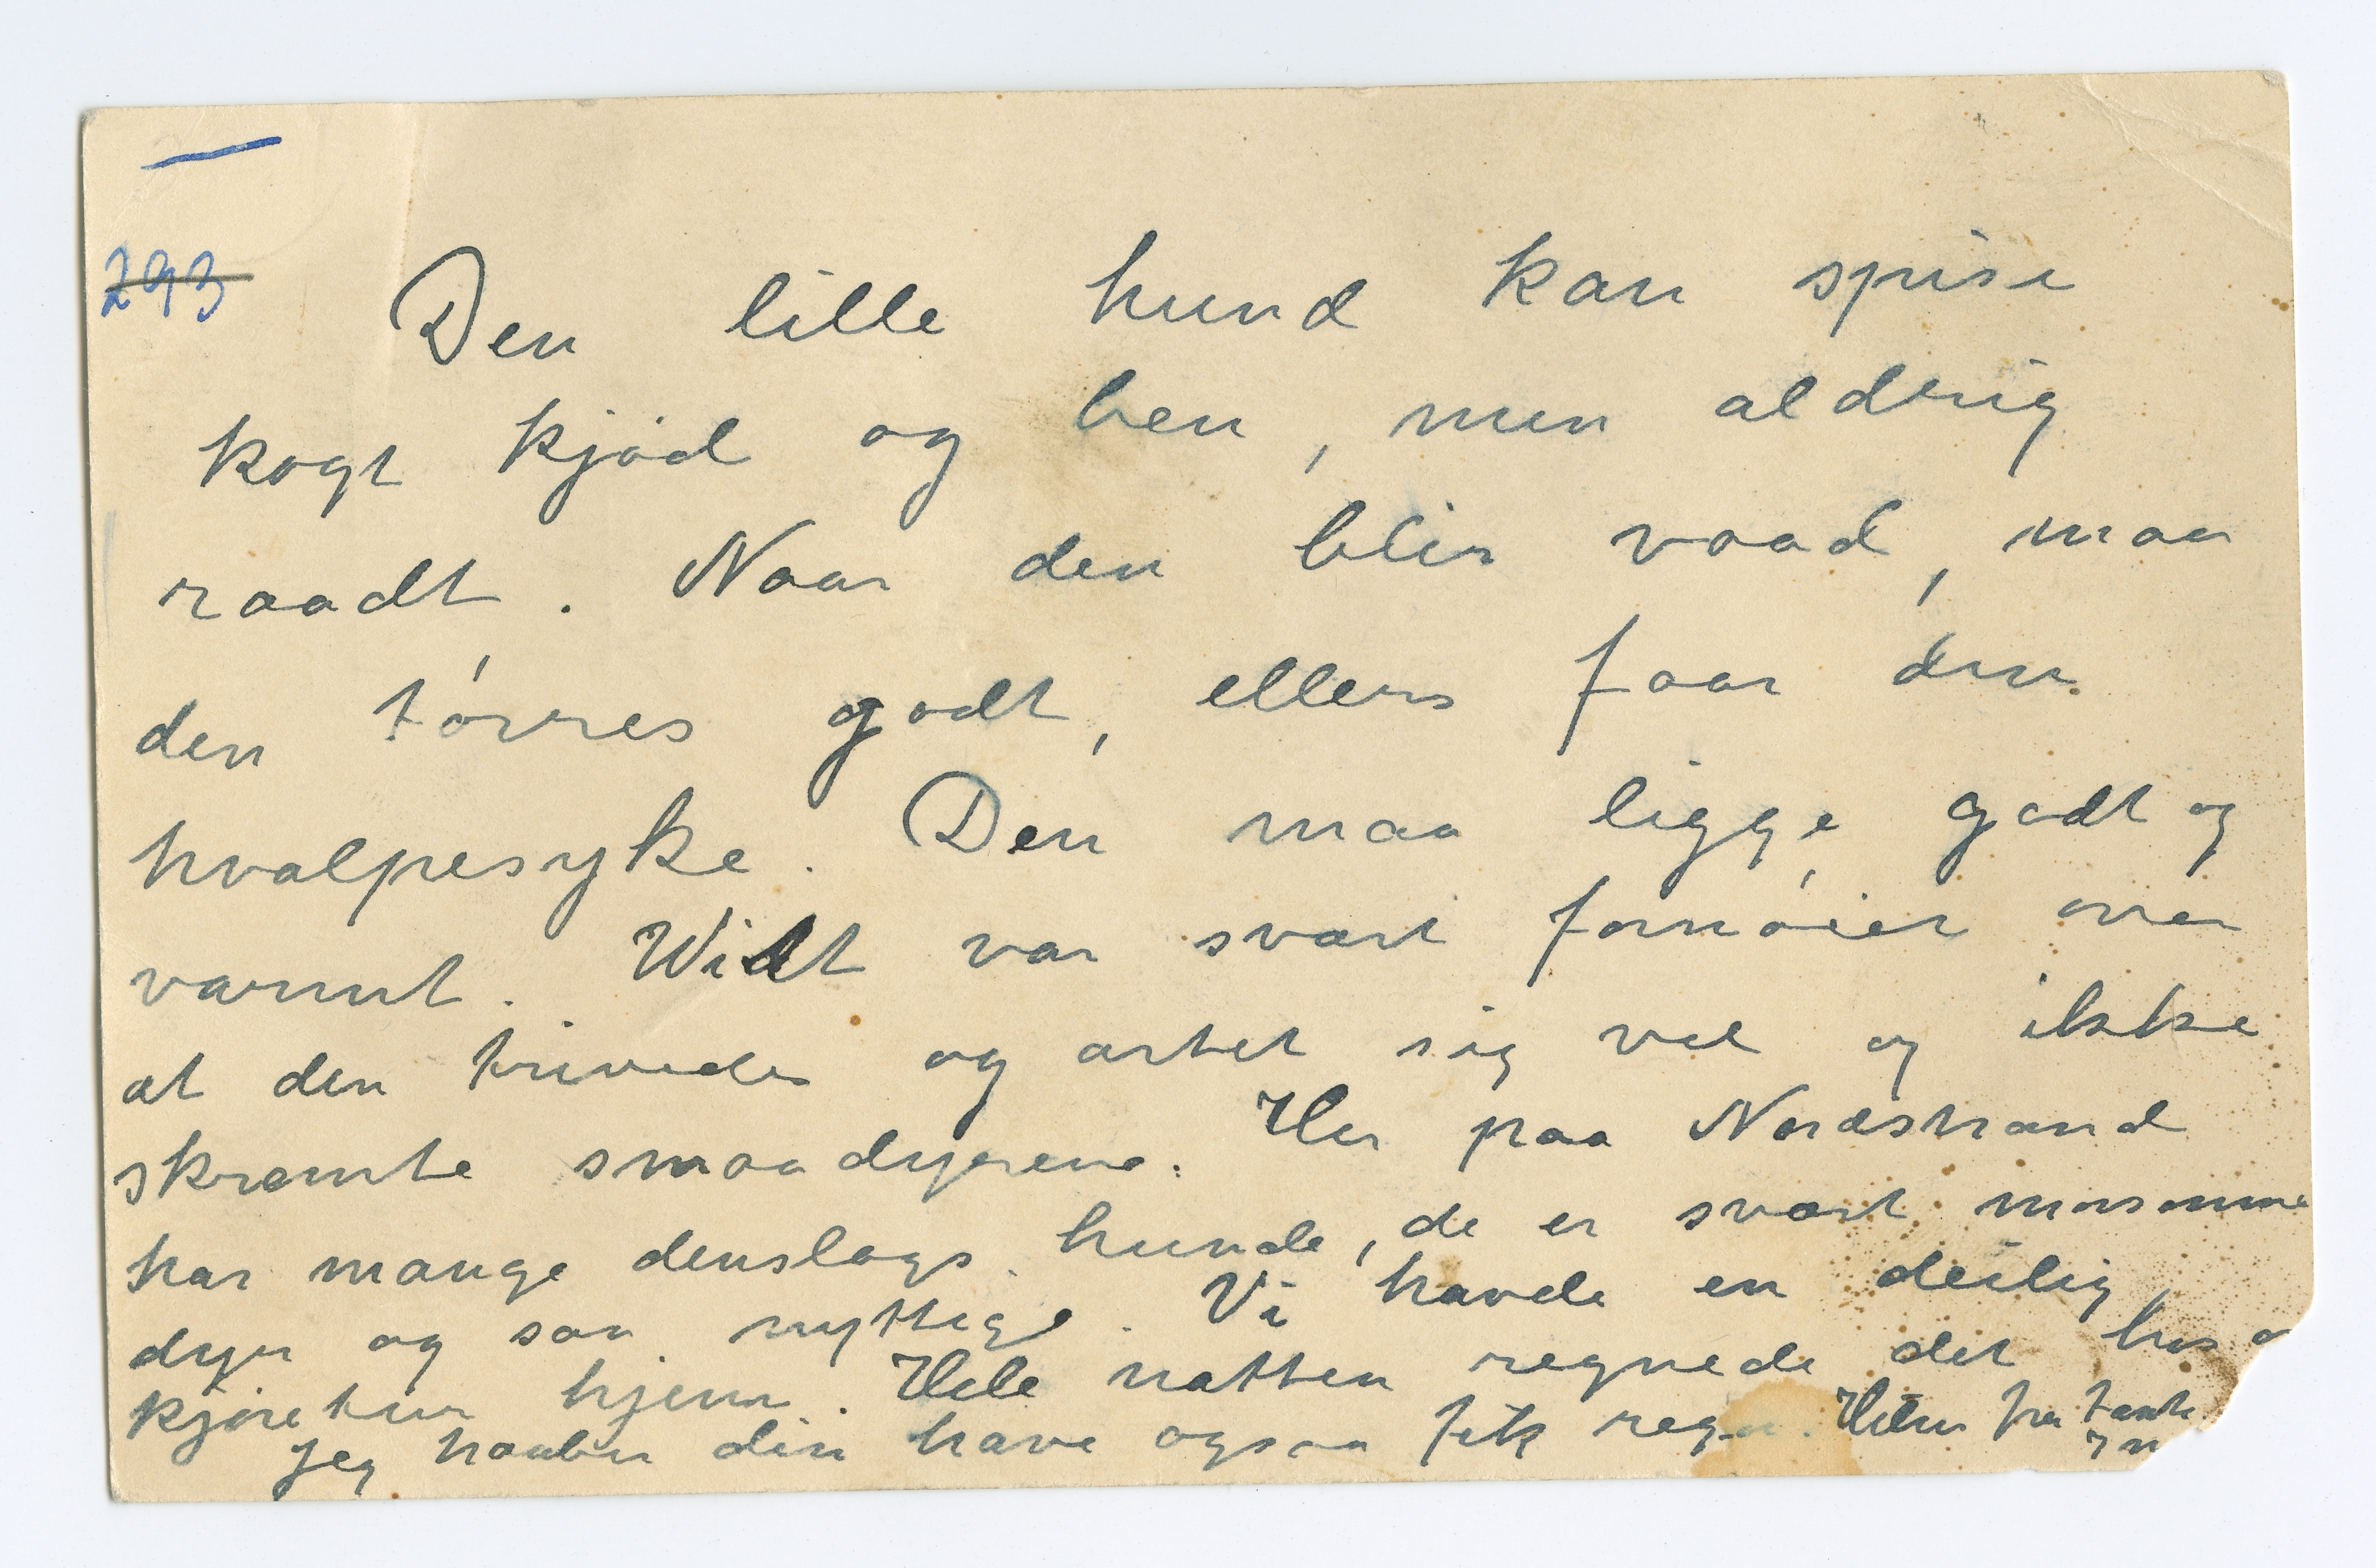 293
Den lille hund kan spise
kogt kjød og ben, men aldrig
raadt. Naar den blir vaad, maa
den tørres godt, ellers faar den
hvalpesyke. Den maa ligge godt og
varmt. Widt var svært fornøiet over
at den trivedes og artet sig vel og ikke
skræmte smaadyrene. Her paa Nordstrand
har mange denslags hunde, de er svært morsomme
dyr og saa nyttige. Vi havde en deilig
kjøretur hjem. Hele natten regnede det hos
Jeg haaber din have ogsaa fik regn. Hilsen fra tante